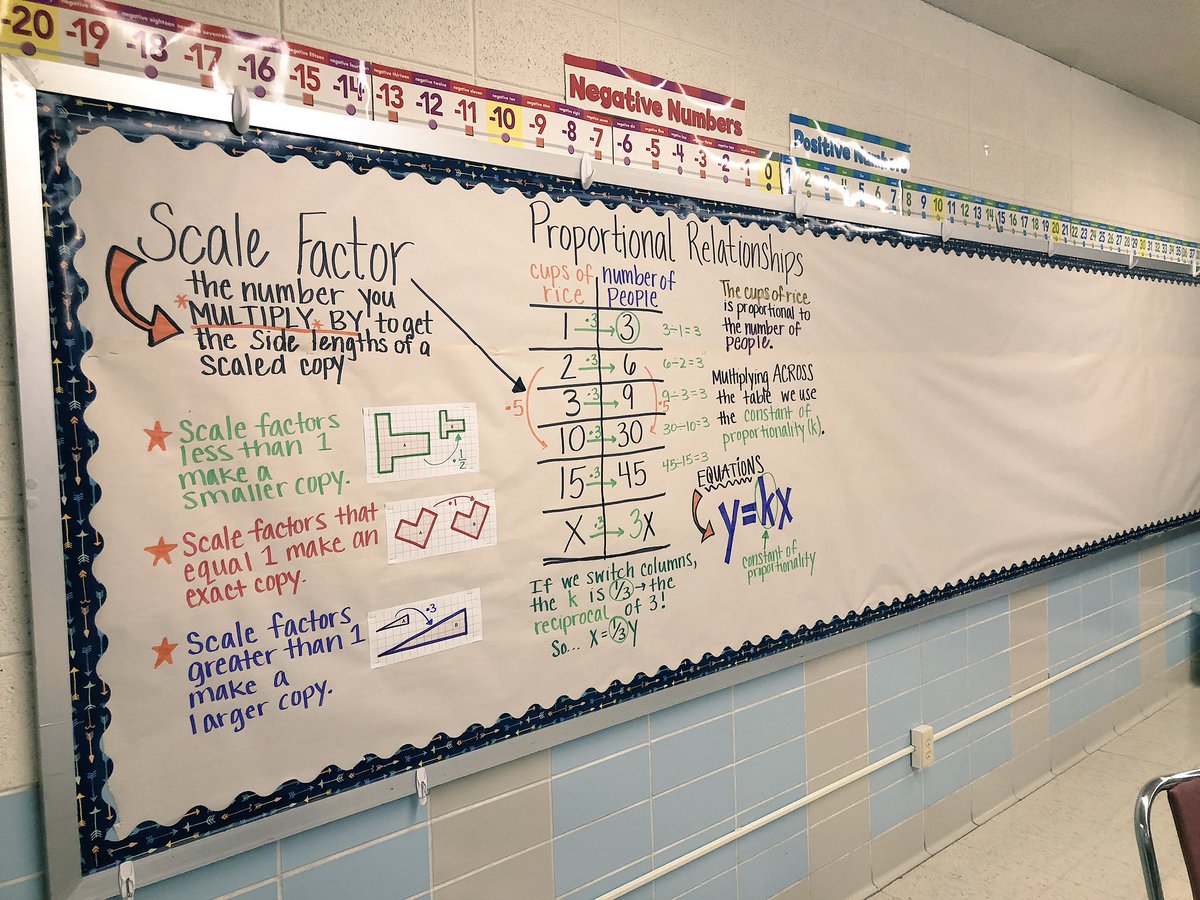 -20 -19 -18 -17 -16 -15 -14 -13 -12 -11 -10 -9 -8 -7 -6 -5 -4 -3 -2 -1 0 1 2 3 4 5 6 7 8 9 10 11 12 13 14 15 16 17 18 19 20 21 22 23 24 25 26 27 28 29 30 31 32 33 34 35 36 37
Negative Numbers
Positive Numbers
Scale Factor
the number you
*MULTIPLY* BY to get
the side lengths of a
scaled copy
Scale factors
less than 1
make a
smaller copy.
·1/2
Scale factors that
equal 1 make an
exact copy.
·1
Scale factors
greater than 1
make a
larger copy.
·3
Proportional Relationships
cups of number of
rice People
1 ·3 3 3÷1=3
2 ·3 6 6÷2=3
3 ·3 9 9÷3=3
·5 ·5
10 ·3 30 30÷10=3
15 ·3 45 45÷15=3
x ·3 3x
If we switch columns,
the k is 1/3 → the
reciprocal of 3!
So... x=1/3y
The cups of rice
is proportional to
the number of
people.
Multiplying ACROSS
the table we use
the constant of
proportionality (k).
EQUATIONS
y=kx
constant of
proportionality